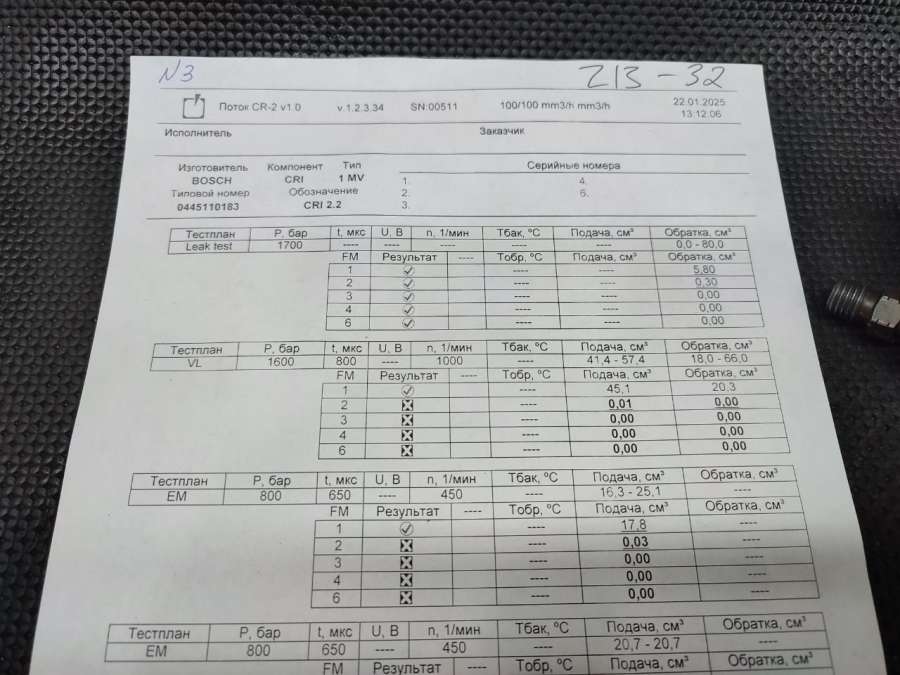 N3 213-32
Поток CR-2 v1.0 v.1.2.3.34 SN:00511 100/100 mm3/h mm3/h 22.01.2025
13.12.06
Исполнитель Заказчик
Изготовитель Компонент Тип Серийные номера
BOSCH CRI 1 MV 1. 4.
Типовой номер Обозначение 2. 6.
0445110183 CRI 2.2 3.
Тестплан P, бар t, мкс U, В n, 1/мин Тбак, ºC Подача, см³ Обратка, см³
Leak test 1700 ---- ---- ---- ---- ---- 0,0 - 80,0
FM Результат ---- Тобр, ºC Подача, см³ Обратка, см³
1 ---- ---- 5,80
2 ---- ---- 0,30
3 ---- ---- 0,00
4 ---- ---- 0,00
6 ---- ---- 0,00
Тестплан P, бар t, мкс U, В n, 1/мин Тбак, ºC Подача, см³ Обратка, см³
VL 1600 800 ---- 1000 ---- 41,4 - 57,4 18,0 - 66,0
FM Результат ---- Тобр, ºC Подача, см³ Обратка, см³
1 ---- 45,1 20,3
2 ---- 0,01 0,00
3 ---- 0,00 0,00
4 ---- 0,00 0,00
6 ---- 0,00 0,00
Тестплан P, бар t, мкс U, В n, 1/мин Тбак, ºC Подача, см³ Обратка, см³
EM 800 650 ---- 450 ---- 16,3 - 25,1 ----
FM Результат ---- Тобр, ºC Подача, см³ Обратка, см³
1 ---- 17,8 ----
2 ---- 0,03 ----
3 ---- 0,00 ----
4 ---- 0,00 ----
6 ---- 0,00 ----
Тестплан P, бар t, мкс U, В n, 1/мин Тбак, ºC Подача, см³ Обратка, см³
EM 800 650 ---- 450 ---- 20,7 - 20,7 ----
FM Результат ---- Тобр, ºC Подача, см³ Обратка, см³